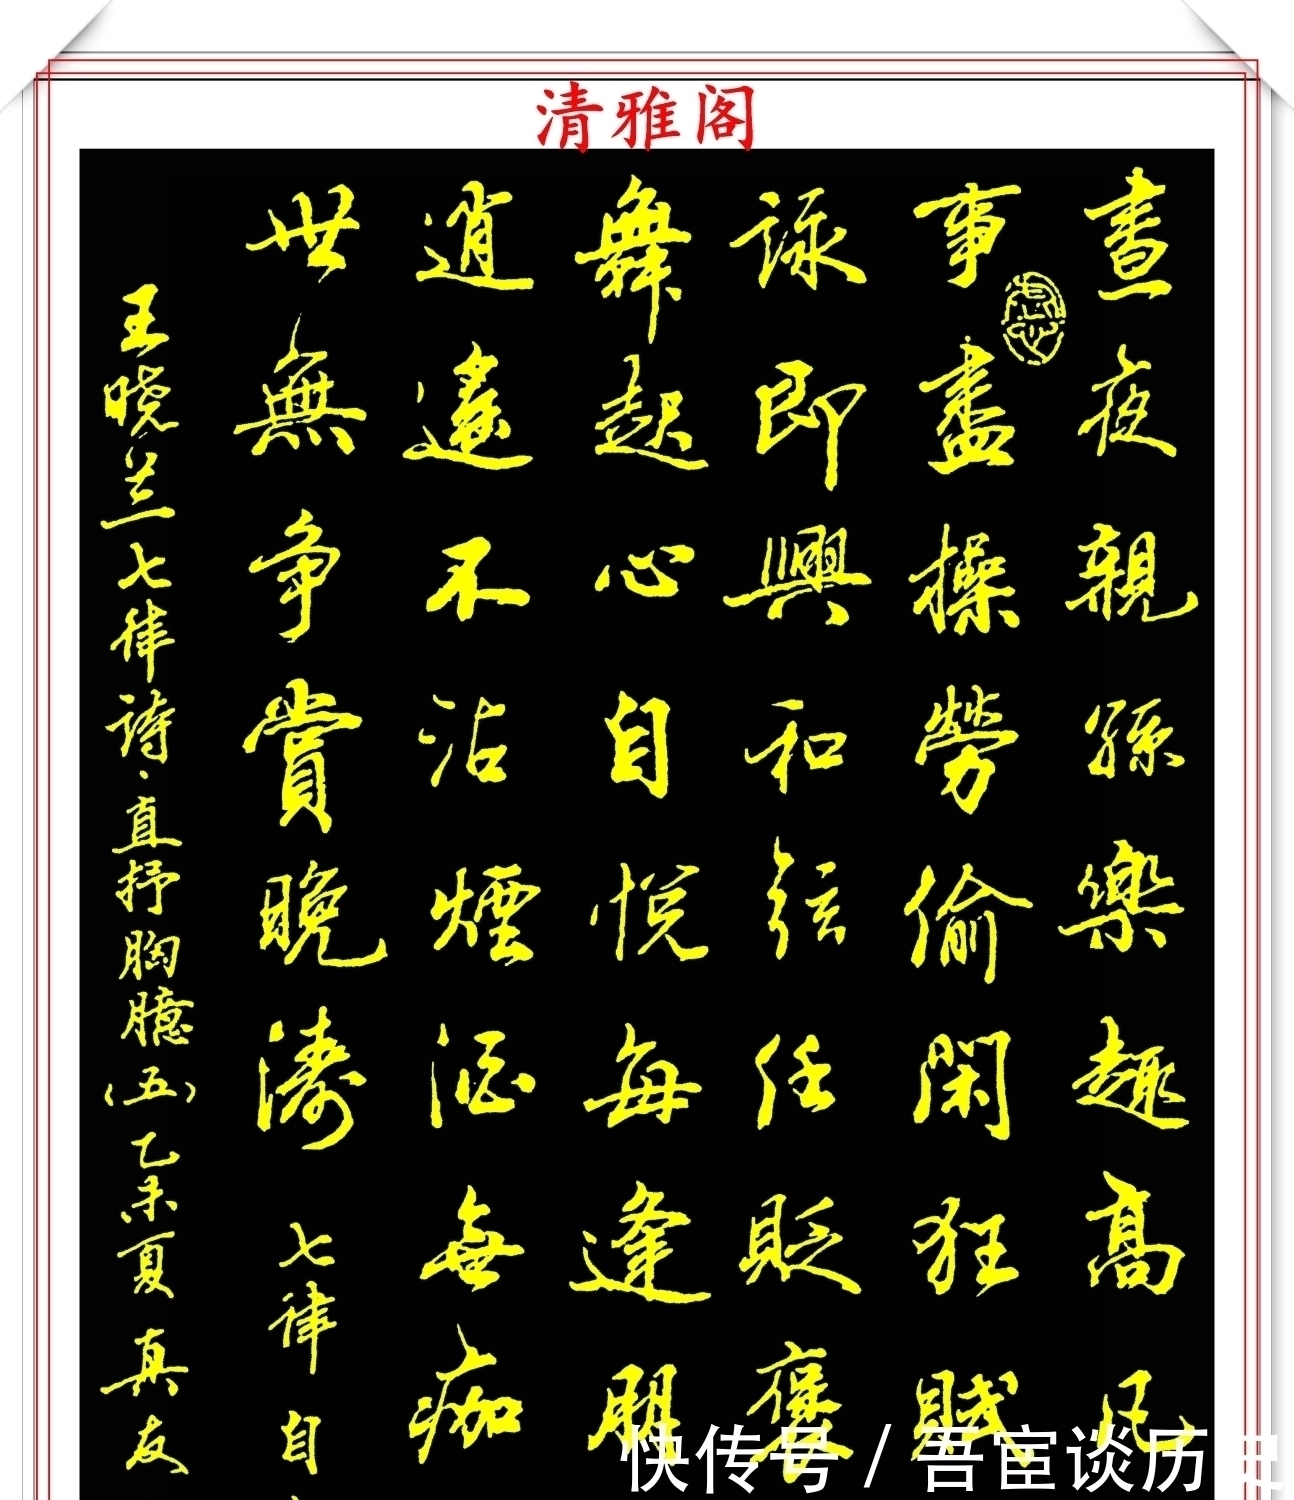 清雅阁
晝夜親孫樂趣高凡
事盡操勞偷閑狂賦
詠即興和弦任貶褒
舞起心自悅每逢朋
逍遙不沾煙酒無痂
世無争賞晚濤 七律自
王晓兰七律诗·直抒胸臆(五)乙未夏真友
快传号/吾宦谈历史